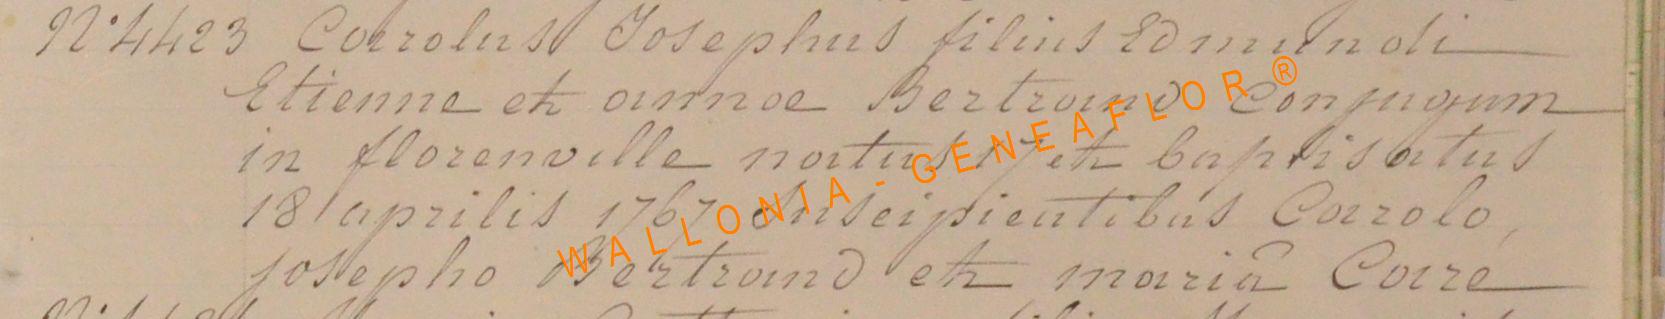 N° 4423 Carolus Josephus filius Edmundi
Etienne et annae Bertrand Conjugum
in florenville natus 17 et baptisatus
18 aprilis 1767 Suscipientibus Carolo,
josepho Bertrand et mariâ Carre
WALLONIA - GENEAFLOR ®